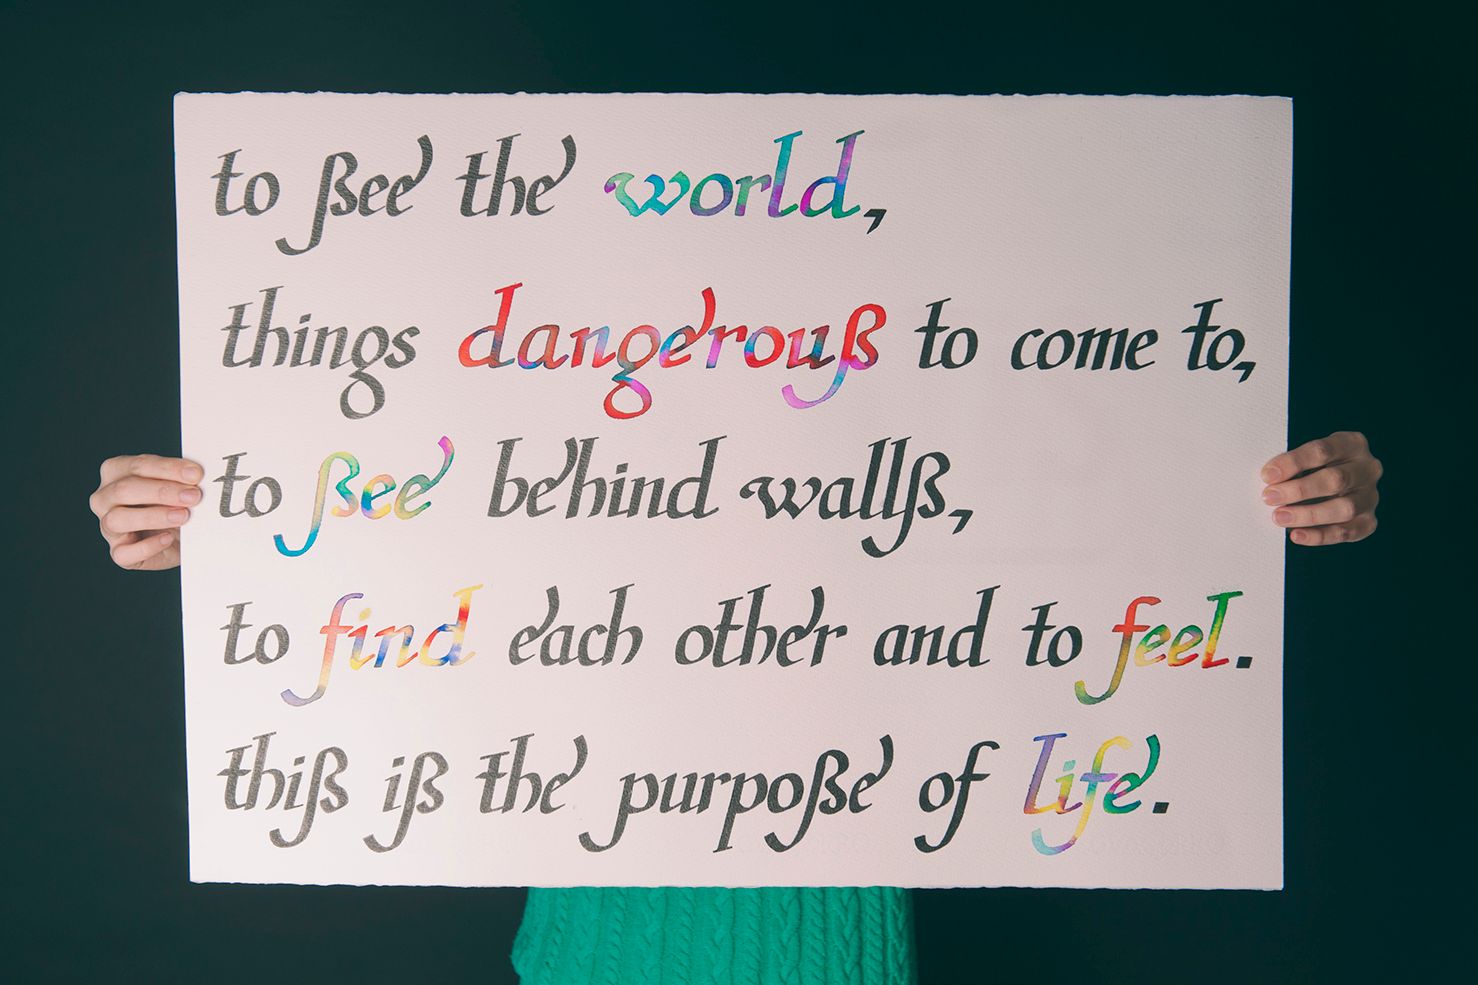 to ßee the world,
things dangerouß to come to,
to ßee behind wallß,
to find each other and to feel.
thiß iß the purpoße of life.